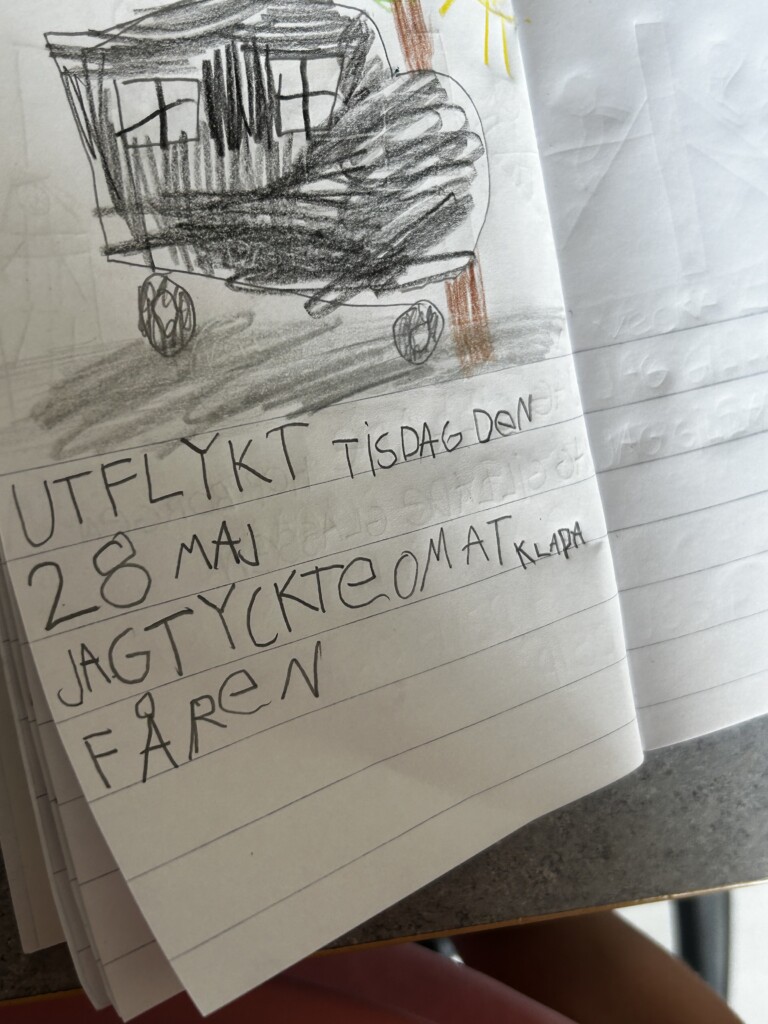 UTFLYKT TISDAG DeN
28 MAJ
JAG TYCKTe OM AT KLAPA
FÅReN